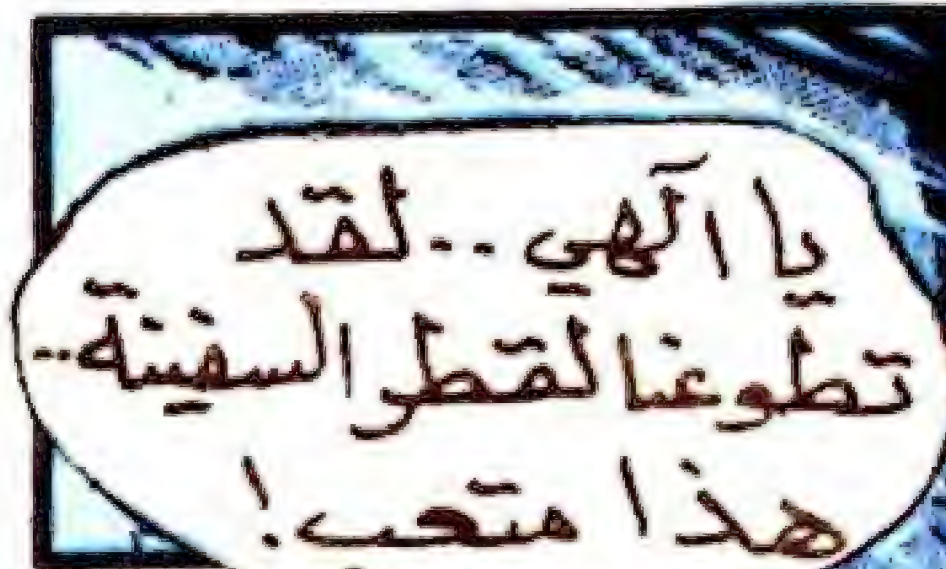 يا آلهي.. لقد
تطوعنا لقطر السفينة..
هذا متعب!